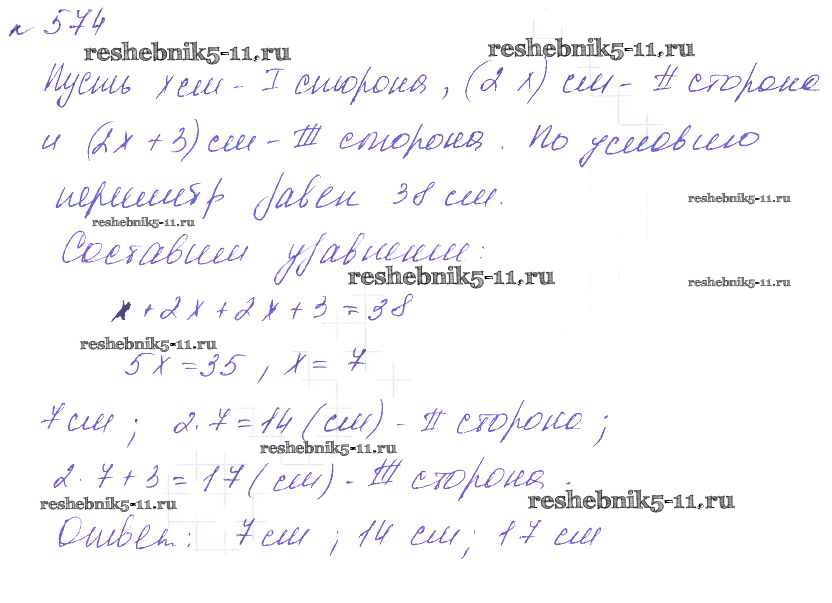 № 574
reshebnik5-11.ru reshebnik5-11.ru
Пусть x см - I сторона, (2x) см - II сторона
и (2x + 3) см - III сторона. По условию
периметр равен 38 см.
reshebnik5-11.ru
reshebnik5-11.ru
Составим уравнение:
reshebnik5-11.ru reshebnik5-11.ru
x + 2x + 2x + 3 = 38
reshebnik5-11.ru
5x = 35, x = 7
7 см; 2·7 = 14 (см) - II сторона;
reshebnik5-11.ru
2·7 + 3 = 17 (см) - III сторона.
reshebnik5-11.ru reshebnik5-11.ru
Ответ: 7 см; 14 см; 17 см